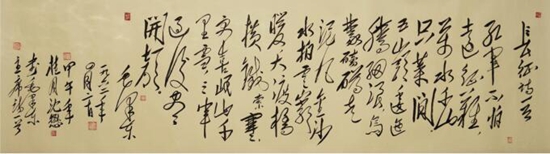 长征诗一首
红军不怕
远征难
万水千山
只等闲
五岭逶迤
腾细浪乌
蒙磅礴走
泥丸金沙
水拍云崖
暖大渡桥
横铁索寒
更喜岷山千
里雪三军
过后尽
开颜
毛泽东
一九六二年
四月二十日
甲午年
桂月
毛泽东
主席诗一首